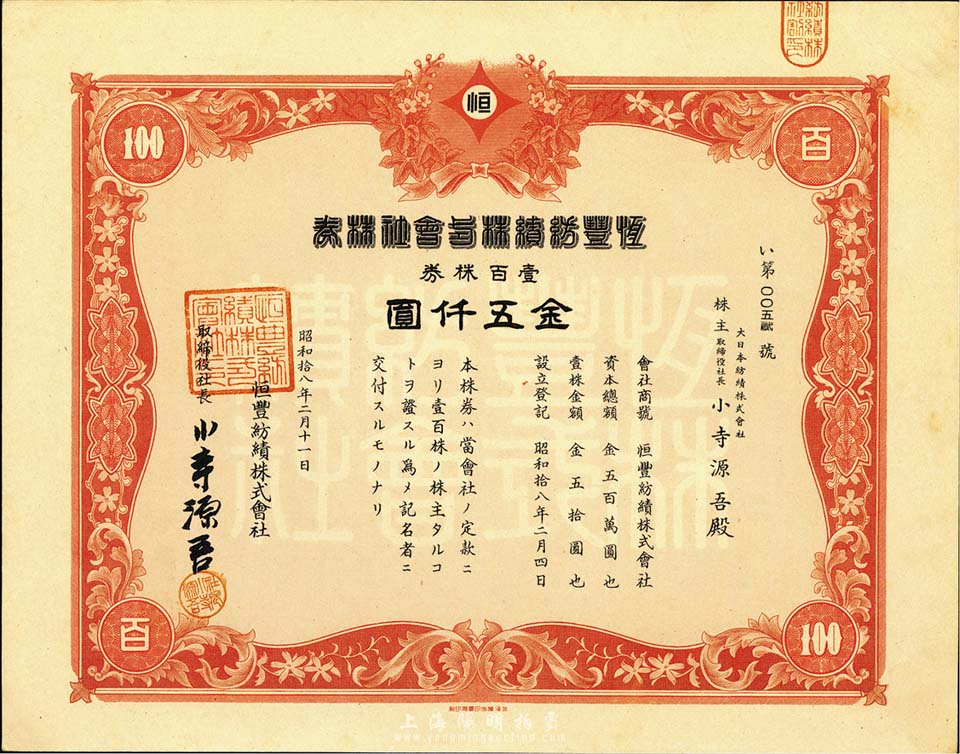 恒
100
百
恆豐紡績株式會社株券
壹百株券
金五仟圓
い第〇〇五貳號
大日本紡績株式會社
株主取締役社長 小寺源吾殿
會社商號 恒豐紡績株式會社
資本總額 金五百萬圓也
壹株金額 金五拾圓也
設立登記 昭和拾八年二月四日
本株券ハ當會社ノ定款ニ
ヨリ壹百株ノ株主タルコ
トヲ證スル爲メ記名者ニ
交付スルモノナリ
昭和拾八年二月十一日
恒豐紡績株式會社
取締役社長 小寺源吾
百
100
上海陽明拍賣
www.yangmingauction.com